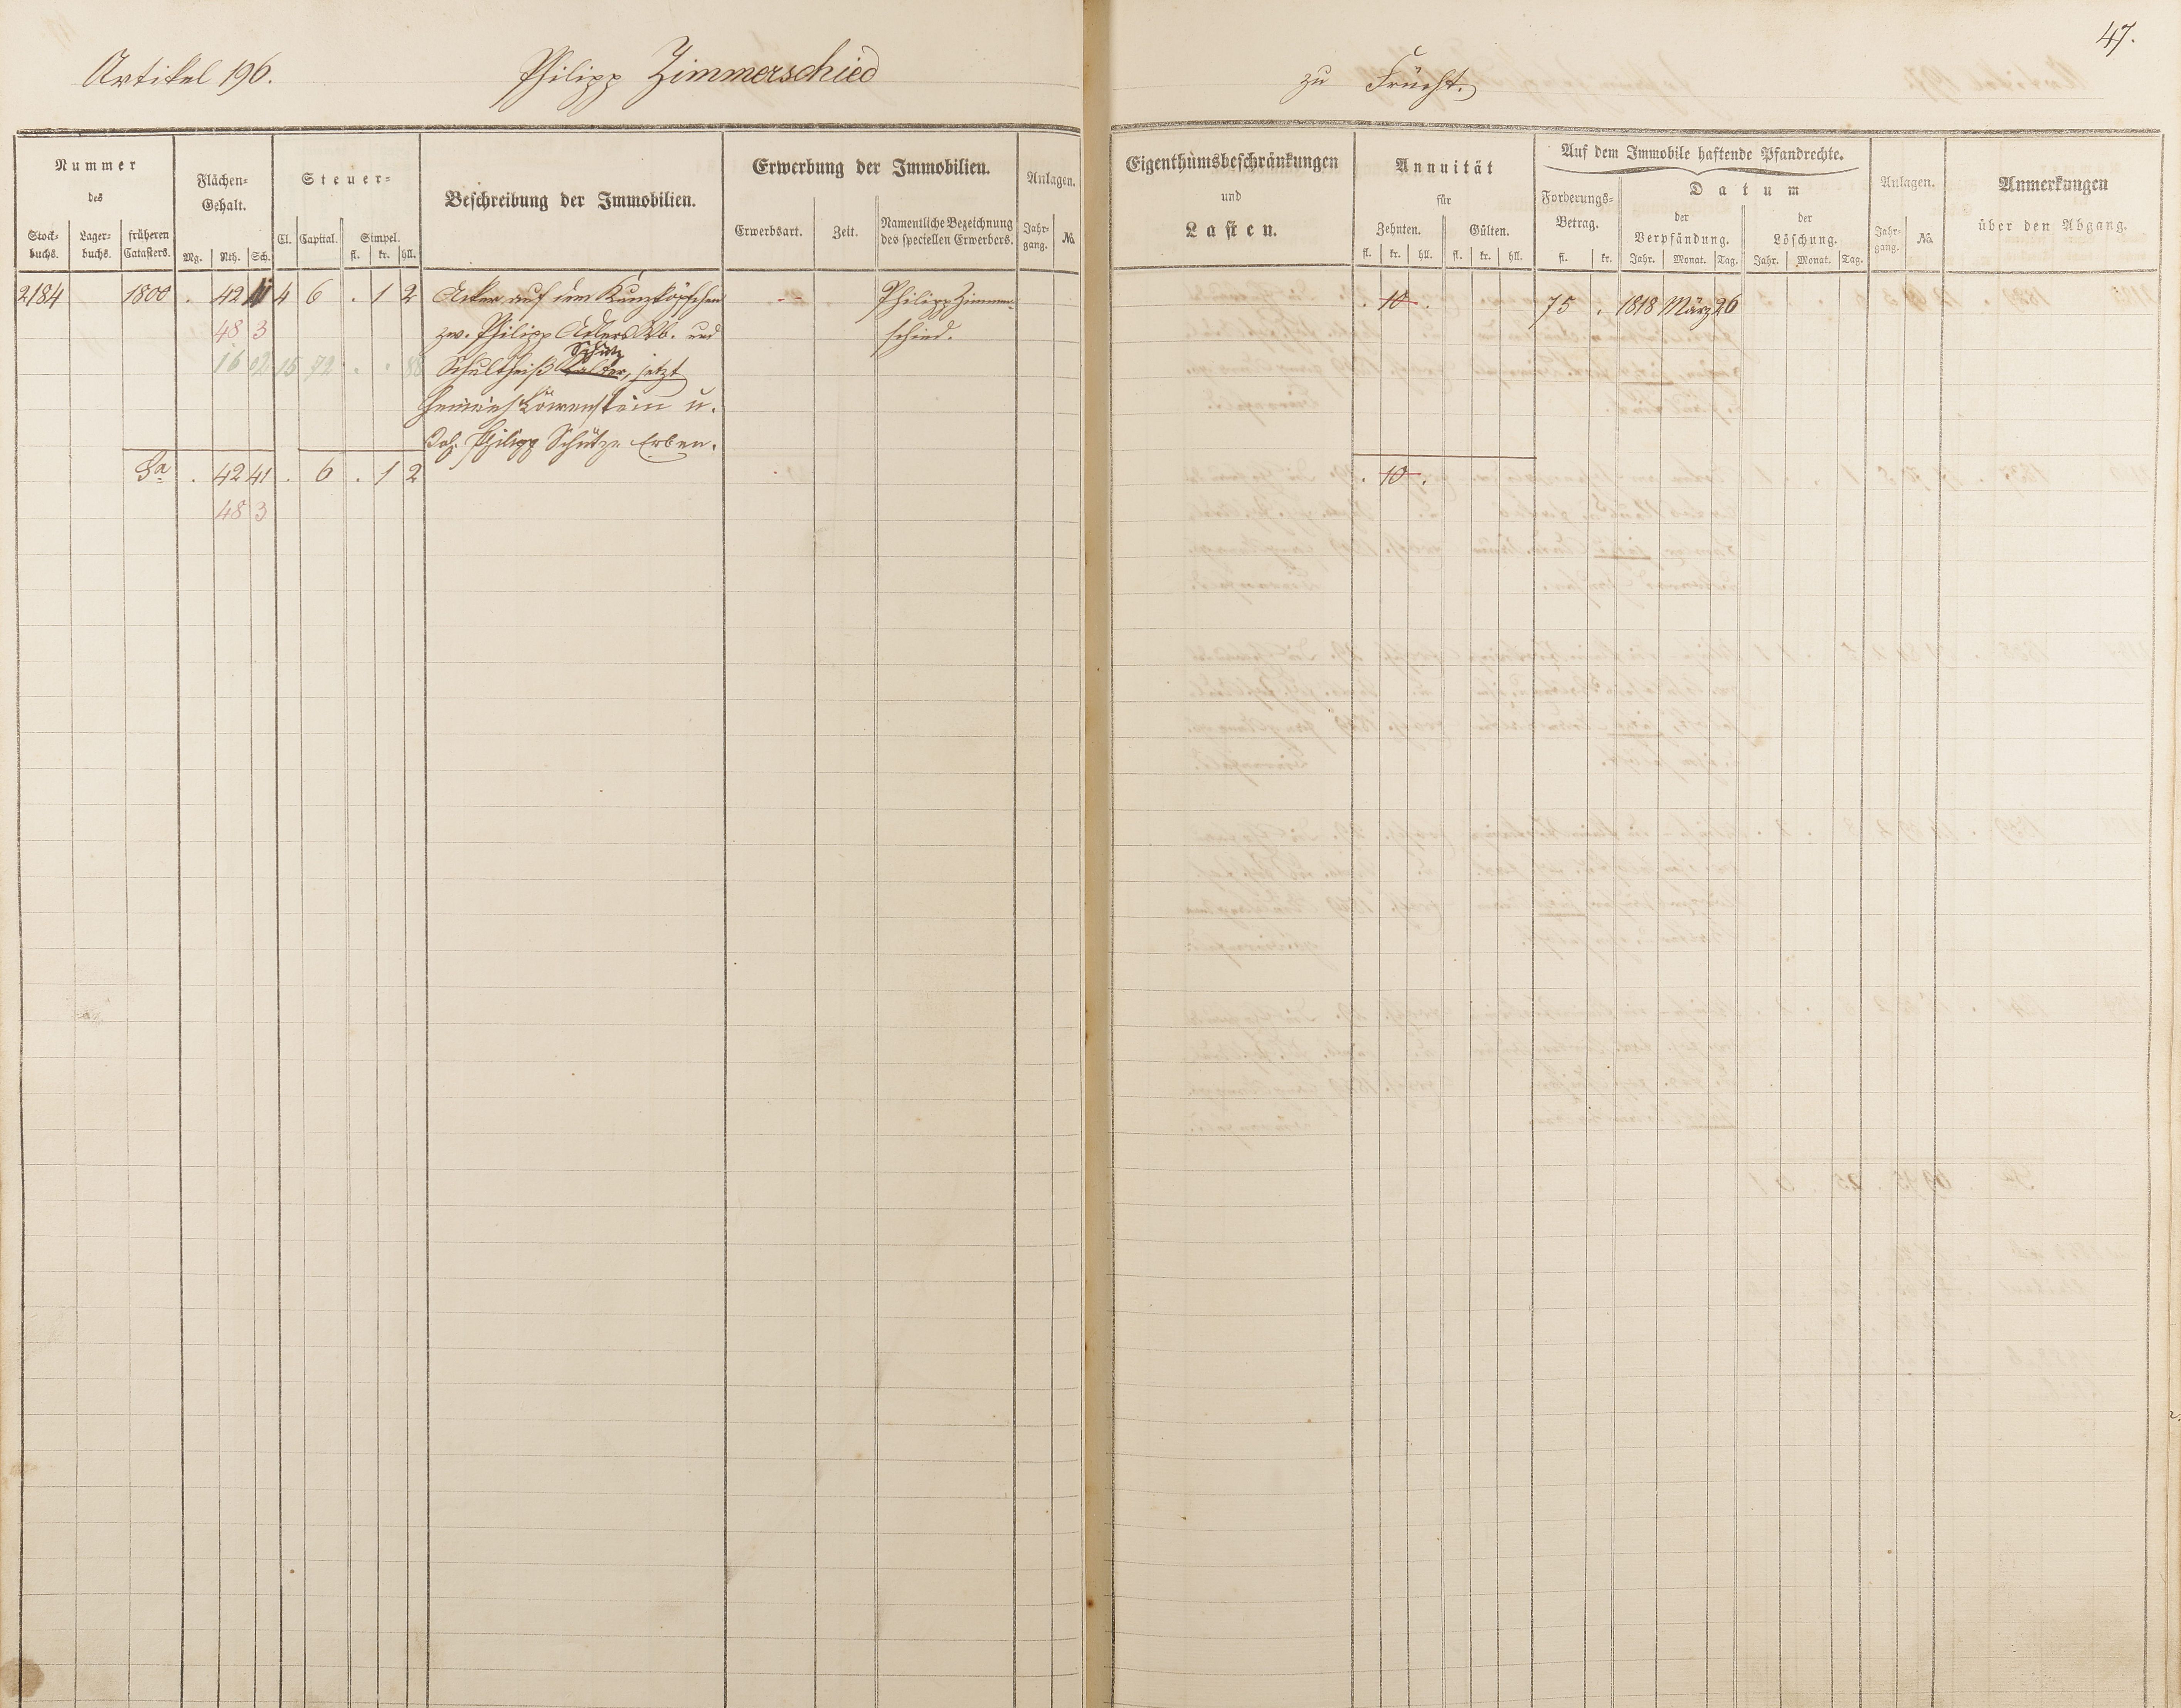 47.
Artikel 196. Philipp Zimmerschied zu Frücht.
Nummer des
Stock-buchs. Lager-buchs. früheren Catasters.
Flächen-Gehalt.
Mg. Rth. Sch.
Steuer-
Cl. Capital. Simpel.
fl. kr. hll.
Beschreibung der Immobilien.
Erwerbung der Immobilien.
Erwerbsart. Zeit. Namentliche Bezeichnung des speciellen Erwerbers.
Anlagen.
Jahr-gang. No.
Eigenthumsbeschränkungen
und
Lasten.
Annuität
für
Zehnten. Gülten.
fl. kr. hll. fl. kr. hll.
Auf dem Immobile haftende Pfandrechte.
Forderungs-Betrag.
fl. kr.
Datum
der Verpfändung. der Löschung.
Jahr. Monat. Tag. Jahr. Monat. Tag.
Anlagen.
Jahr-gang. No.
Anmerkungen
über den Abgang.
2184 1800 . 42 41 4 6 . 1 2 Acker auf dem Kunzköpfchen - - Philipp Zimmer- . 10 . 75 . 1818 März 26
48 3 zw. Philipp Adlers Wb. und schied.
16 02 15 72 . . 88 Schultheiß Schütz, jetzt
Heinrich Löwenstein u.
Joh. Philipp Schütze Erben.
Sa. . 42 41 . 6 . 1 2 . 10 .
48 3